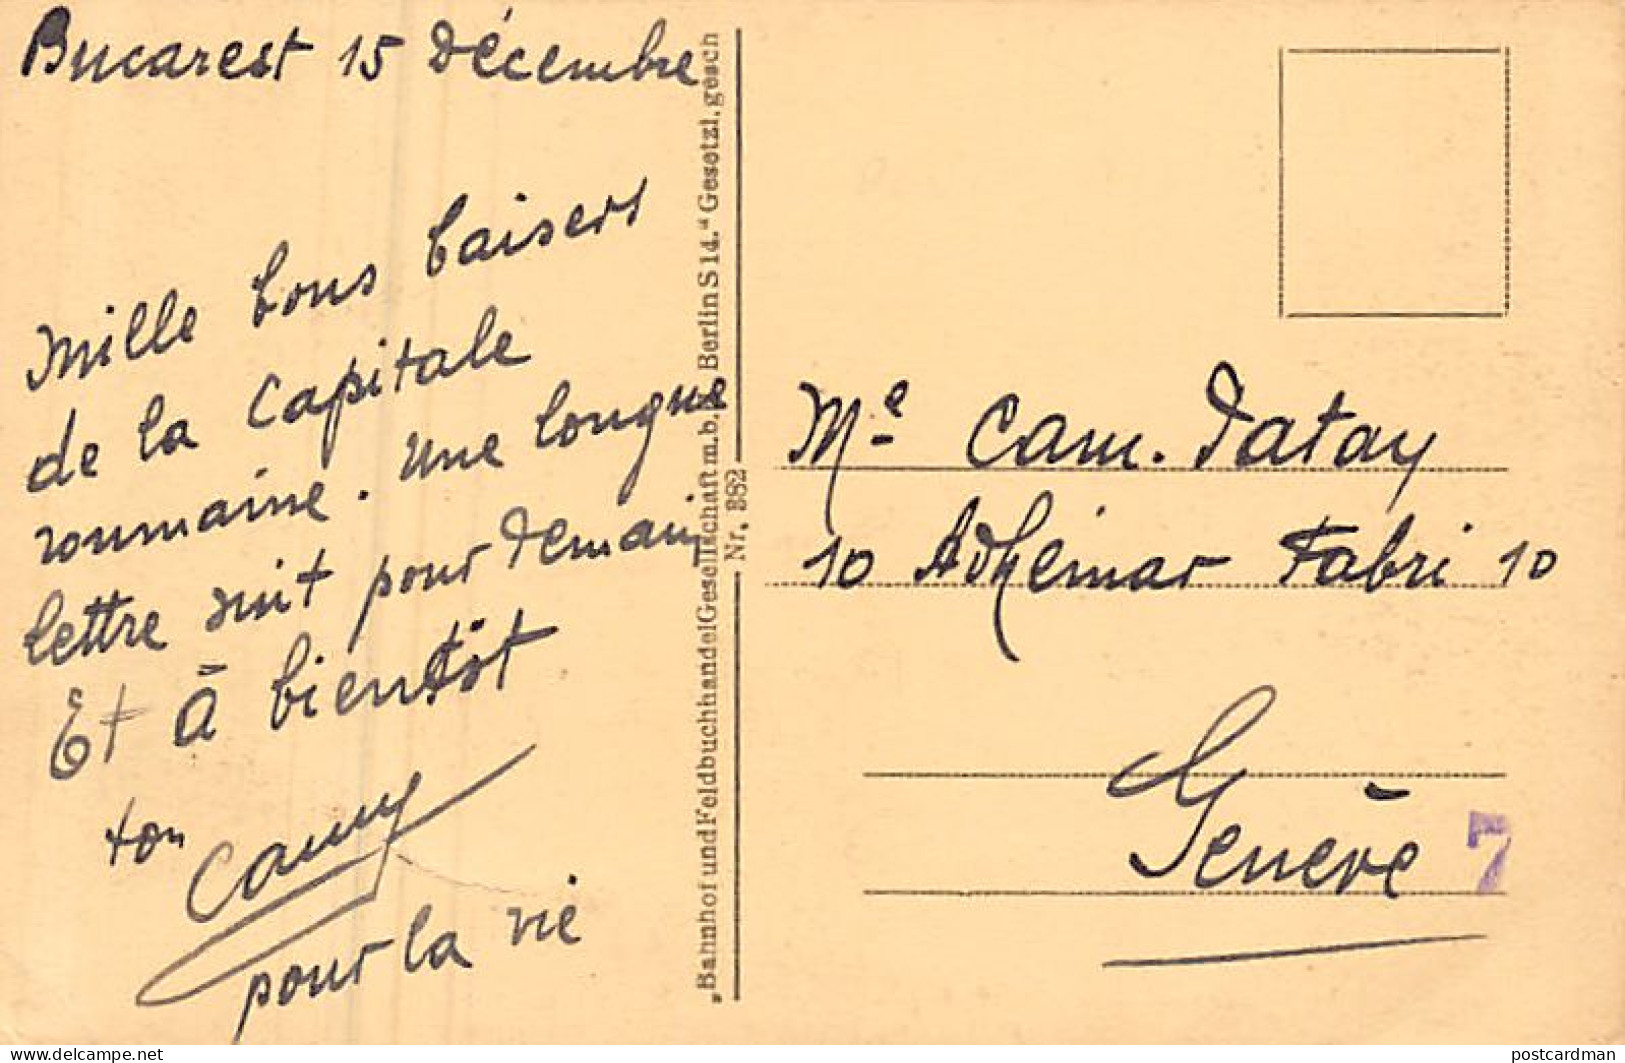 Bucarest 15 Décembre
Mille bons baisers
de la Capitale
roumaine. Une longue
lettre suit pour demain
Et à bientôt
ton
Camy
pour la vie
„Bahnhof und Feldbuchhandel Gesellschaft m.b.H. Berlin S 14.“ Gesetzl. gesch
Nr. 382
Me Cam. Tatay
10 Adhémar Fabri 10
Genève
7
postcardman